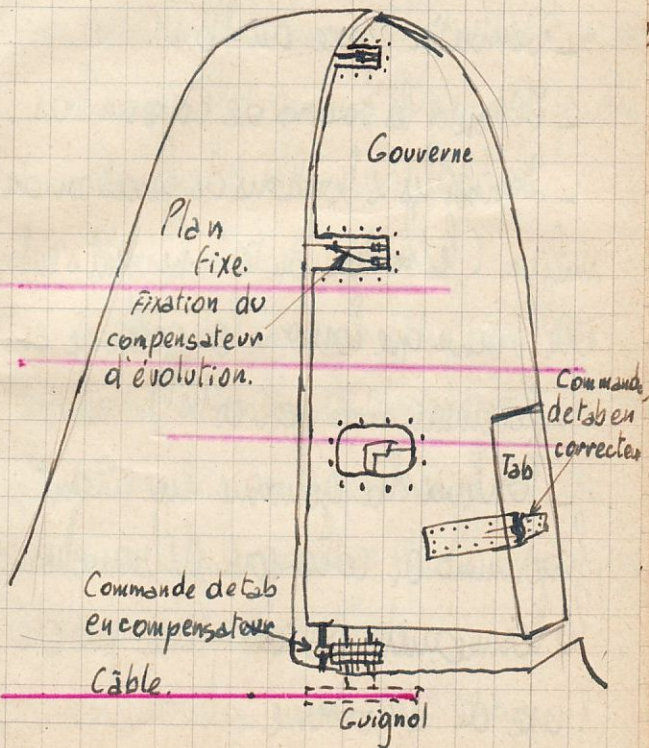 Gouverne
Plan
fixe.
Fixation du
compensateur
d'évolution.
Commande
de tab en
correcteu
Tab
Commande de tab
en compensateur
Câble.
Guignol